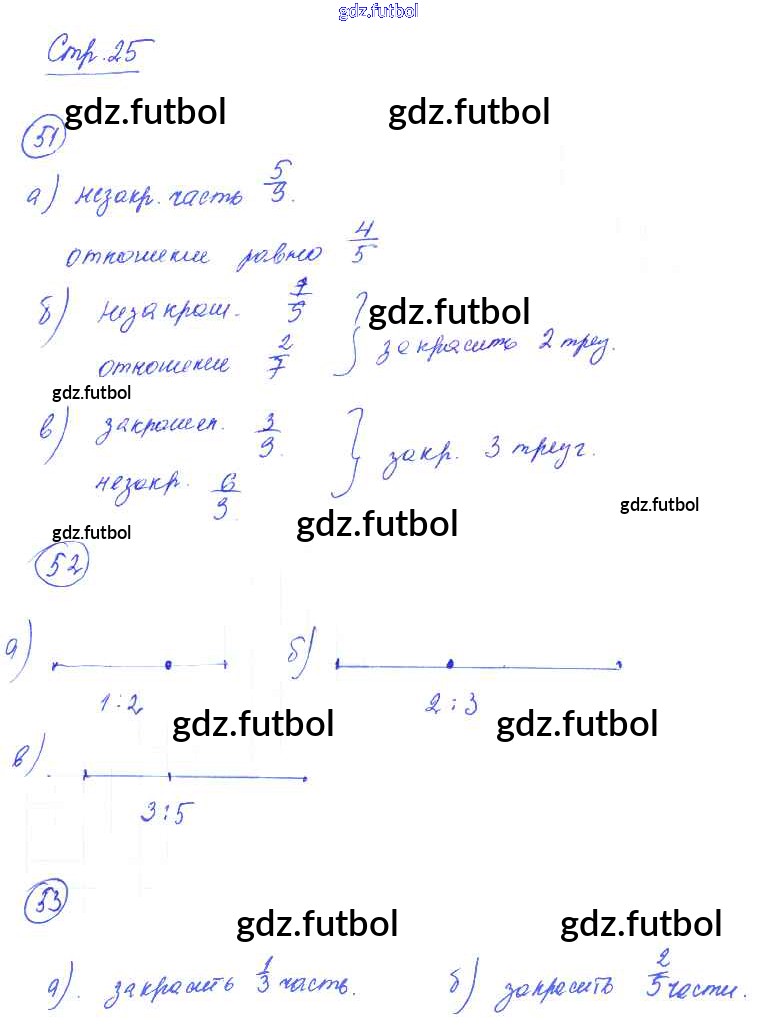 gdz.futbol
Стр. 25
gdz.futbol gdz.futbol
51
а) незакр. часть 5/9.
отношение равно 4/5
б) незакраш. 7/9 gdz.futbol
отношение 2/7 } закрасить 2 треуг.
gdz.futbol
в) закрашен. 3/9. } закр. 3 треуг.
незакр. 6/9.
gdz.futbol gdz.futbol gdz.futbol
52
а) б)
1:2 2:3
gdz.futbol gdz.futbol
в)
3:5
53
gdz.futbol gdz.futbol
а). закрасить 1/3 часть. б) закрасить 2/5 части.